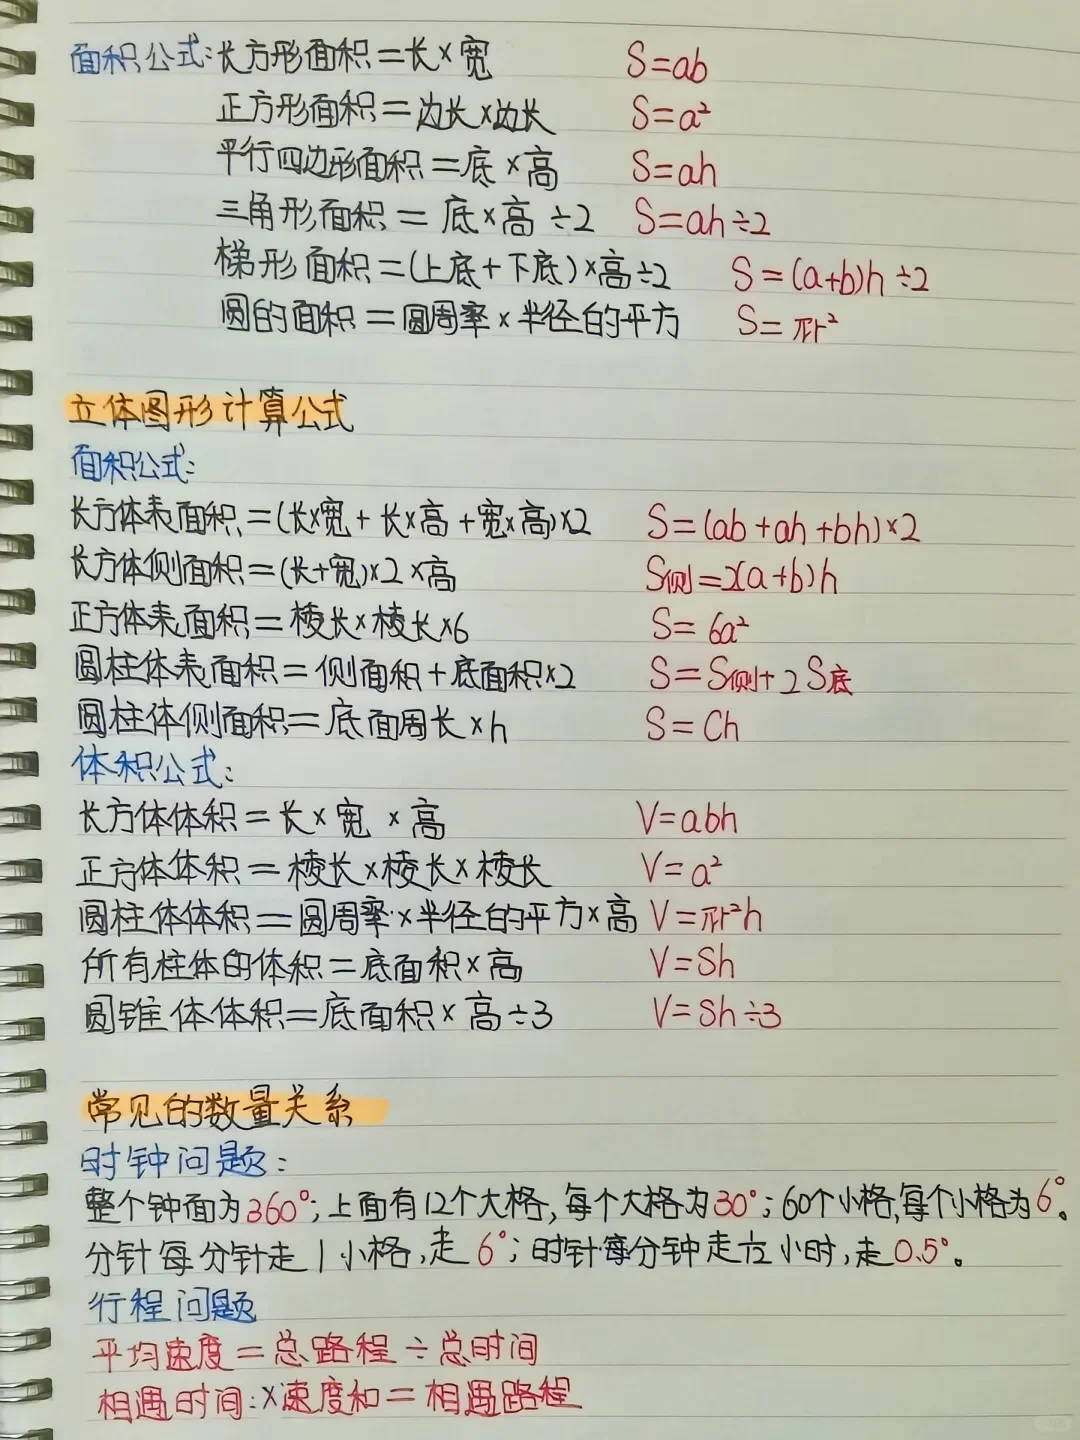 面积公式:长方形面积=长×宽 S=ab
正方形面积=边长×边长 S=a²
平行四边形面积=底×高 S=ah
三角形面积=底×高÷2 S=ah÷2
梯形面积=(上底+下底)×高÷2 S=(a+b)h÷2
圆的面积=圆周率×半径的平方 S=πr²
立体图形计算公式
面积公式:
长方体表面积=(长×宽+长×高+宽×高)×2 S=(ab+ah+bh)×2
长方体侧面积=(长+宽)×2×高 S侧=2(a+b)h
正方体表面积=棱长×棱长×6 S=6a²
圆柱体表面积=侧面积+底面积×2 S=S侧+2S底
圆柱体侧面积=底面周长×h S=Ch
体积公式:
长方体体积=长×宽×高 V=abh
正方体体积=棱长×棱长×棱长 V=a²
圆柱体体积=圆周率×半径的平方×高 V=πr²h
所有柱体的体积=底面积×高 V=Sh
圆锥体体积=底面积×高÷3 V=Sh÷3
常见的数量关系
时钟问题:
整个钟面为360°;上面有12个大格,每个大格为30°;60个小格,每个小格为6°。
分针每分针走1小格,走6°;时针每分钟走小时,走0.5°。
行程问题
平均速度=总路程÷总时间
相遇时间:×速度和=相遇路程